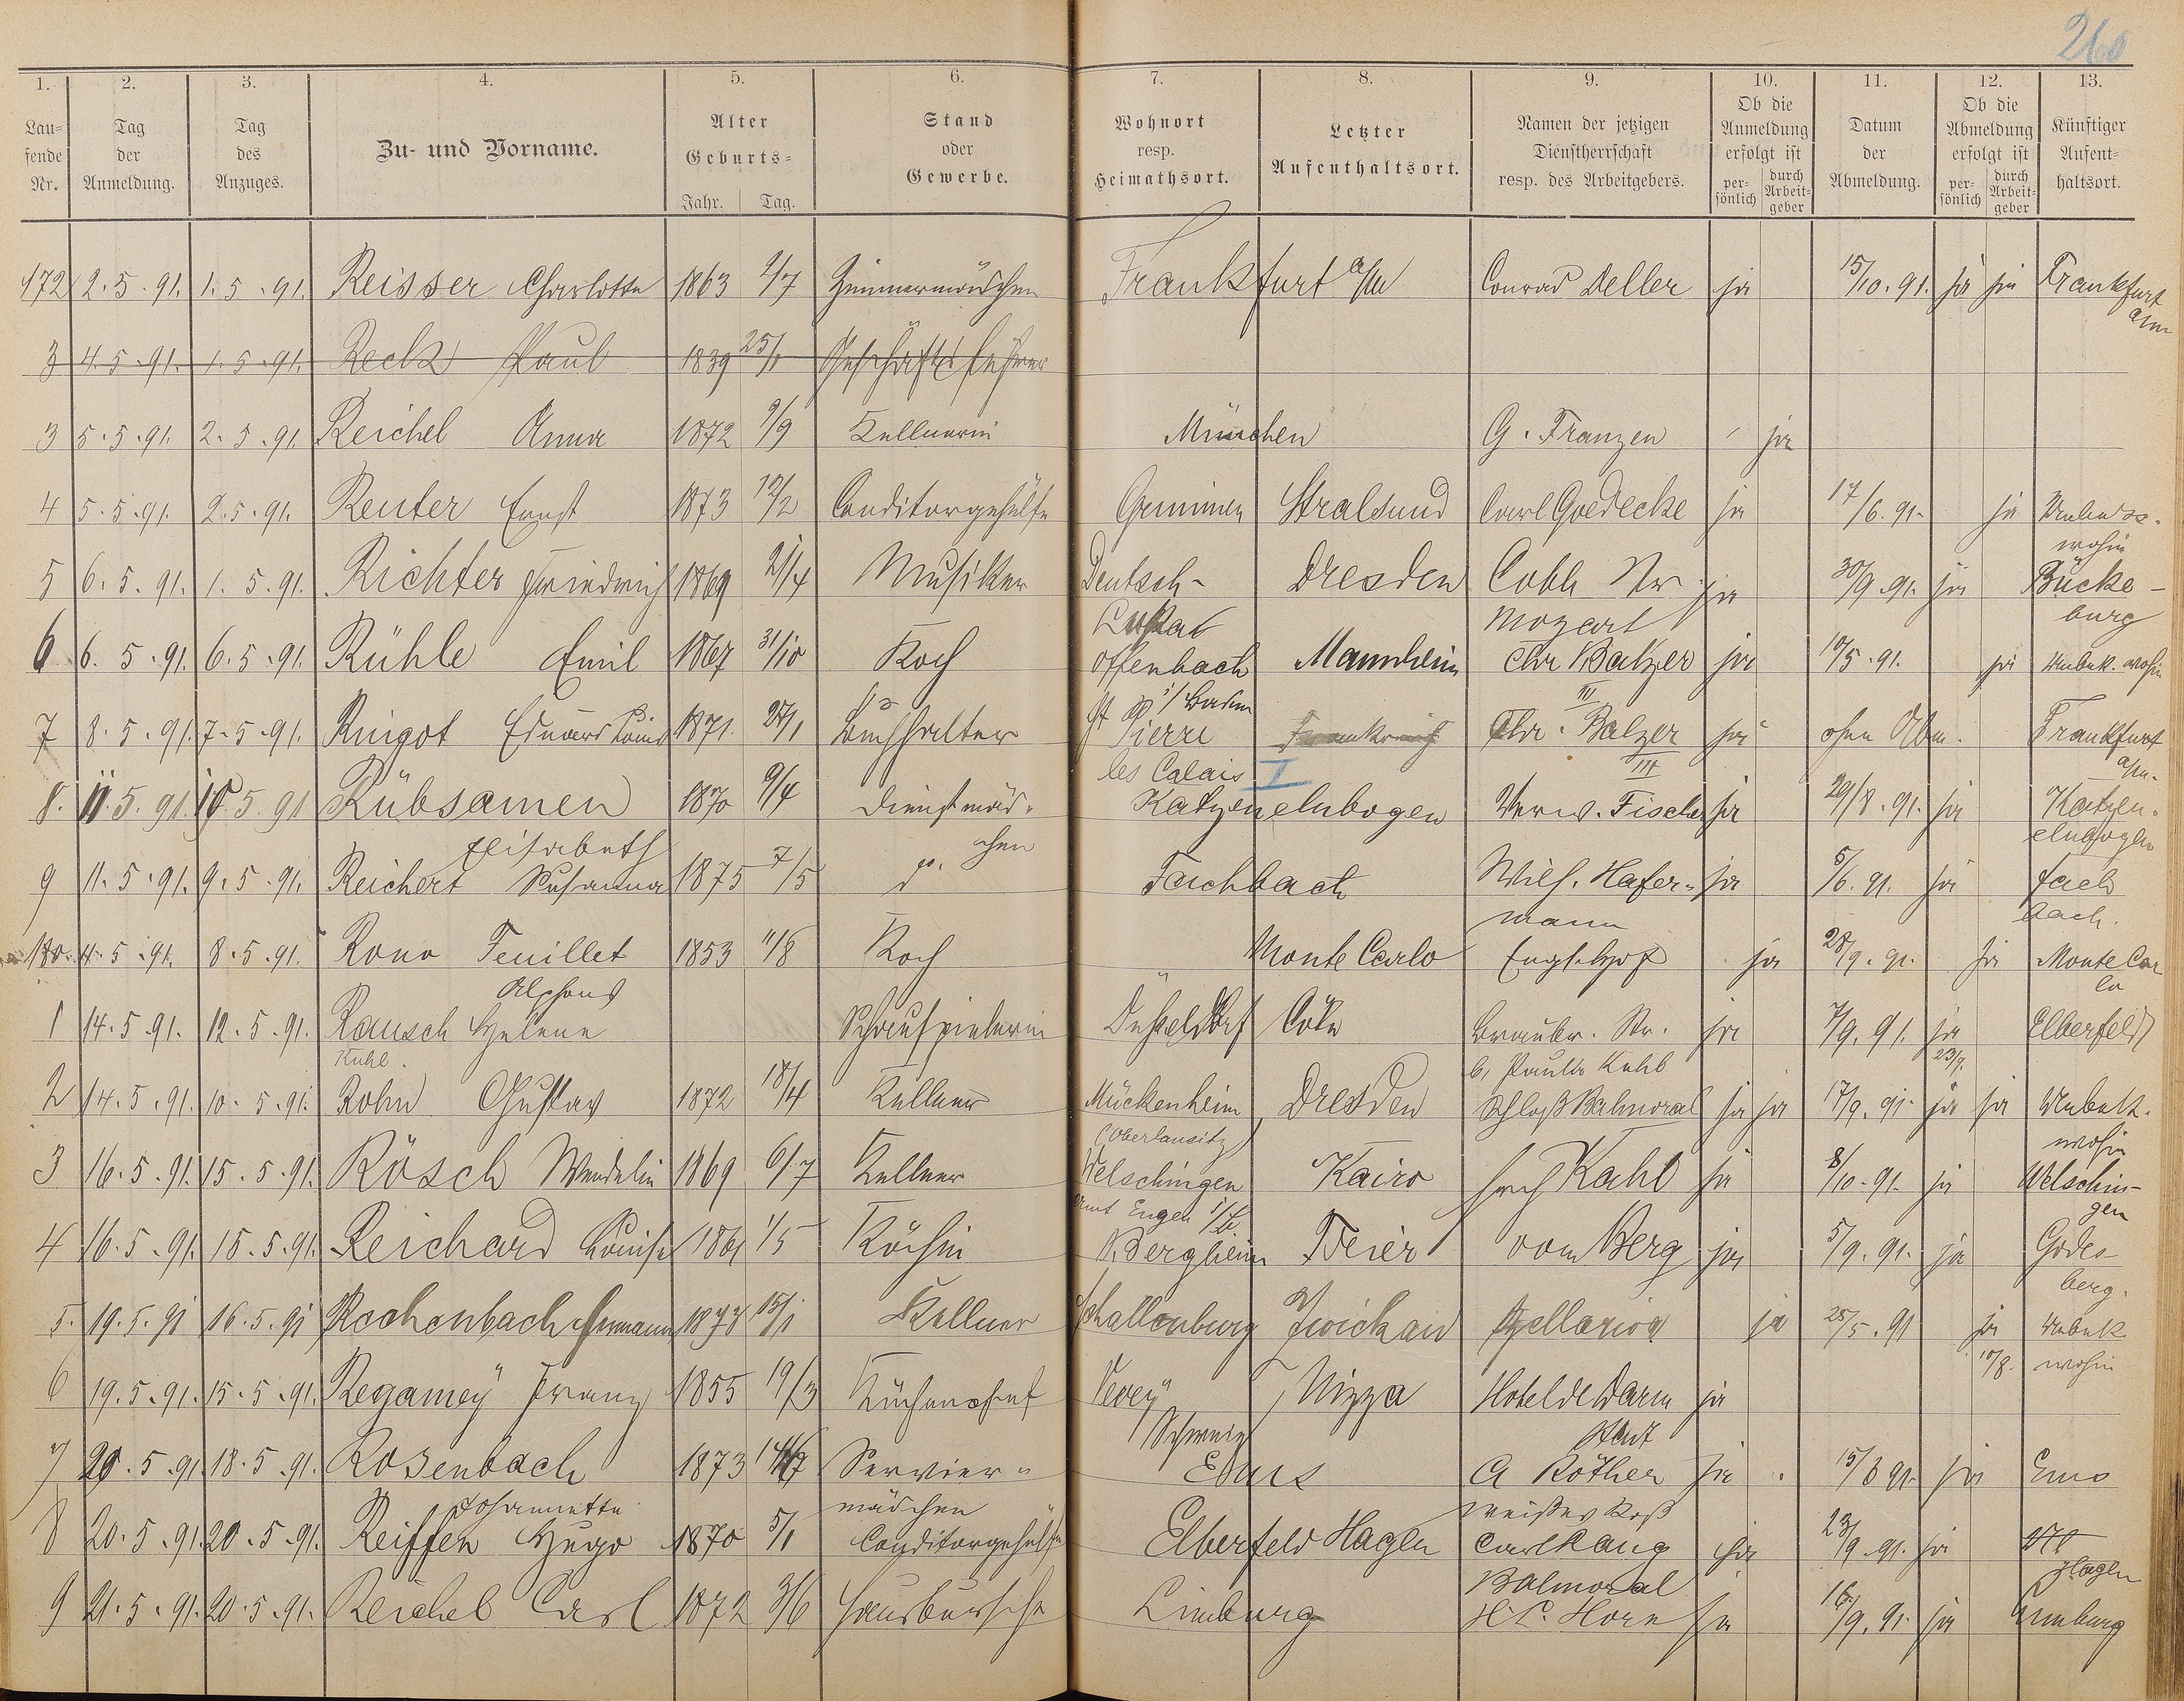 260
1. 2. 3. 4. 5. 6. 7. 8. 9. 10. 11. 12. 13.
Laufende Nr. Tag der Anmeldung. Tag des Anzuges. Zu- und Vorname. Alter Geburts- Jahr. Tag. Stand oder Gewerbe. Wohnort resp. Heimathsort. Letzter Aufenthaltsort. Namen der jetzigen Dienstherrschaft resp. des Arbeitgebers. Ob die Anmeldung erfolgt ist persönlich durch Arbeitgeber Datum der Abmeldung. Ob die Abmeldung erfolgt ist persönlich durch Arbeitgeber Künftiger Aufenthaltsort.
172 2.5.91. 1.5.91. Reisser Charlotte 1863 2/7 Zimmermädchen Frankfurt a/M Conrad Deller ja 15/10.91. ja ja Frankfurt a/m
3 4.5.91. 1.5.91. Reck Paul 1839 25/1 Geschäftsführer
3 5.5.91. 2.5.91. Reichel Anna 1872 9/9 Kellnerin München G. Franzen ja
4 5.5.91. 2.5.91. Reuter Ernst 1873 12/2 Conditorgehülfe Grimmen Stralsund Carl Goedecke ja 17/6.91. ja wohin
5 6.5.91. 1.5.91. Richter Friedrich 1869 21/4 Musiker Deutsch- Dresden Cobl. Str. ja 30/9.91. ja Bücke-
Mozart burg
6 6.5.91. 6.5.91. Rühle Emil 1867 31/10 Koch Offenbach Mannheim Chr Balzer ja 10/5.91. ja Unbek. wohin
i/Baden III
7 8.5.91. 7.5.91. Ringot Eduard Louis 1871. 27/1 Buchhalter St Pierre Frankreich Chr. Balzer ja ohne Abm. Frankfurt
les Calais I III a/m.
8. 11.5.91. 10.5.91 Rübsamen 1870 9/4 Dienstmäd- Katzenelnbogen Verw. Fischer ja 29/8.91. ja Katzen-
Elisabeth chen elnbogen
9 11.5.91. 9.5.91. Reichert Susanna 1875 7/5 do. Fachbach Wilh. Hafer- ja 5/6.91. ja Fach
mann bach.
180. 5.91. 8.5.91. Rono Feuillet 1853 11/8 Koch Monte Carlo Engl. Hof ja 28/9.91. ja Monte Car
Alphons lo
1 14.5.91. 12.5.91. Rausch Helene Schauspielerin Düsseldorf Cöln Braubr. Str. ja 7/9.91. ja Elberfeld
Kuhl. b. Paula Kuhl 23/9.
2 14.5.91. 10.5.91. Rohn Gustav 1872 18/4 Kellner Mückenheim Dresden Schloß Balmoral ja ja 17/9.91. ja ja Unbek.
(Oberlausitz) wohin
3 16.5.91. 15.5.91. Rösch Wendelin 1869 6/7 Kellner Welschingen Kairo Kahl ja 8/10.91. ja Welschin-
amt Engen gen
4 16.5.91. 15.5.91. Reichard Louise 1861 1/5 Köchin N. Bergheim Trier vom Berg ja 5/9.91. ja Godes-
berg.
5. 19.5.91 16.5.91 Rechenbach Hermann 15/1 Kellner Schallenburg Zwickau ja 25/5.91 ja Unbek.
10/8. wohin
6 19.5.91. 15.5.91. Regamey Franz 1855 19/3 Küchenchef Vevey Nizza Hotel de Darm ja
Schweiz stadt
7 20.5.91. 18.5.91. Rosenbach 1873 Servier- Ems A Röther ja 15/8 91. ja Ems
Johannette mädchen weißes Roß
8 20.5.91. 20.5.91. Reiffen Hugo 1870 5/1 Conditorgehülfe Elberfeld Hagen Carl Rang ja 23/9.91. ja
Balmoral Hagen
9 21.5.91. 20.5.91. Reichel Carl 1872 3/6 Hausbursche Limburg H. P. Horn ja 16/9.91. ja Limburg